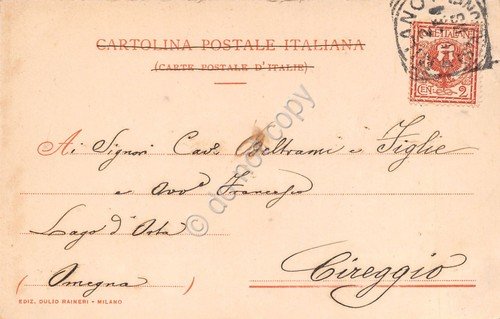 CARTOLINA POSTALE ITALIANA
(CARTE POSTALE D'ITALIE)
CEN. 2
Ai Signori Cav. Beltrami e Figlie
e Avv. Francesco
Lago d'Orta
(Omegna)
Cireggio
EDIZ. DULIO RAINERI - MILANO